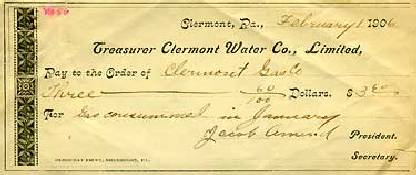 Clermont, Pa., February 1 1906
Treasurer Clermont Water Co., Limited,
Pay to the Order of Clermont Gas Co
Three 60/100 Dollars. $3 60
For Gas consummed in January
Jacob Ament President.
Secretary.